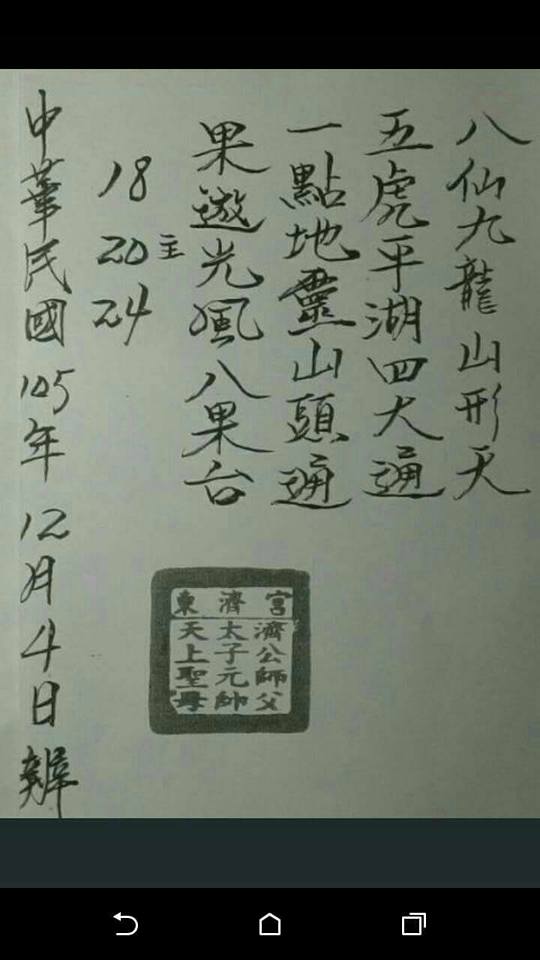 八仙九龍山形天
五虎平湖四大通
一點地靈山頭通
果遨光風八果台
18
20主
24
中華民國105年12月4日辦
東濟宮
濟公師父
太子元帥
天上聖母